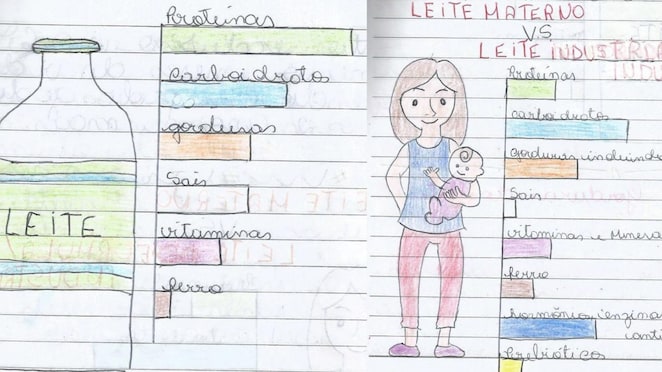 Proteínas
Carboidratos
gorduras
Sais
vitaminas
ferro
LEITE
LEITE MATERNO
V.S.
LEITE
Proteínas
carboidratos
Gorduras
Sais
vitaminas e
ferro
hormônios,
Prebióticos